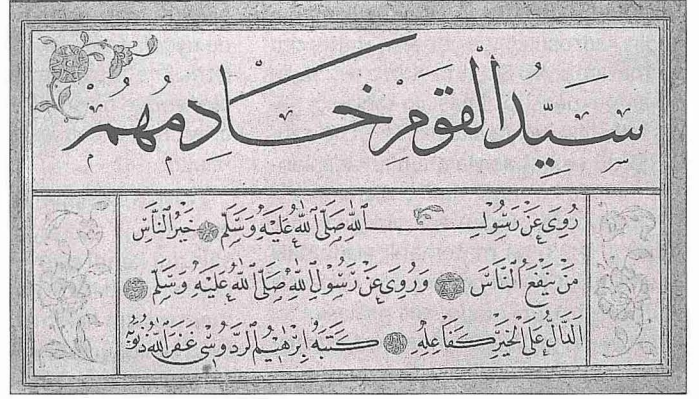 سَيِّدُ الْقَوْمِ خَادِمُهُمْ
رُوِيَ عَنْ رَسُولِ اللهِ صَلَّى اللهُ عَلَيْهِ وَسَلَّمَ خَيْرُ النَّاسِ
مَنْ يَنْفَعُ النَّاسَ وَرُوِيَ عَنْ رَسُولِ اللهِ صَلَّى اللهُ عَلَيْهِ وَسَلَّمَ
الدَّالُّ عَلَى الْخَيْرِ كَفَاعِلِهِ كَتَبَهُ إِبْرَاهِيمُ الرَّدُوسِي غَفَرَ اللهُ ذُنُوبَهُ